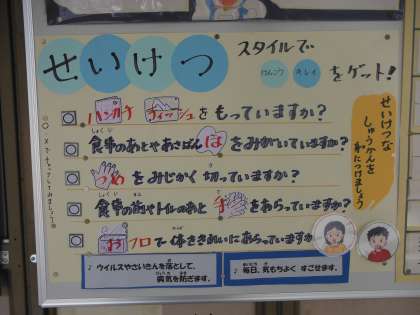 せいけつ スタイルで
けんこう キレイ をゲット!
ハンカチ ティッシュ をもっていますか?
食事のあとやあさばん は をみがいていますか?
つめ をみじかく 切っていますか?
食事の前やトイレのあと 手 をあらっていますか?
おフロ で体をきれいにあらっていますか
せいけつな
しゅうかんを
みにつけましょう
♪ ウイルスやさいきんを落として、
病気を防ぎます。
♪ 毎日、気もちよく すごせます。